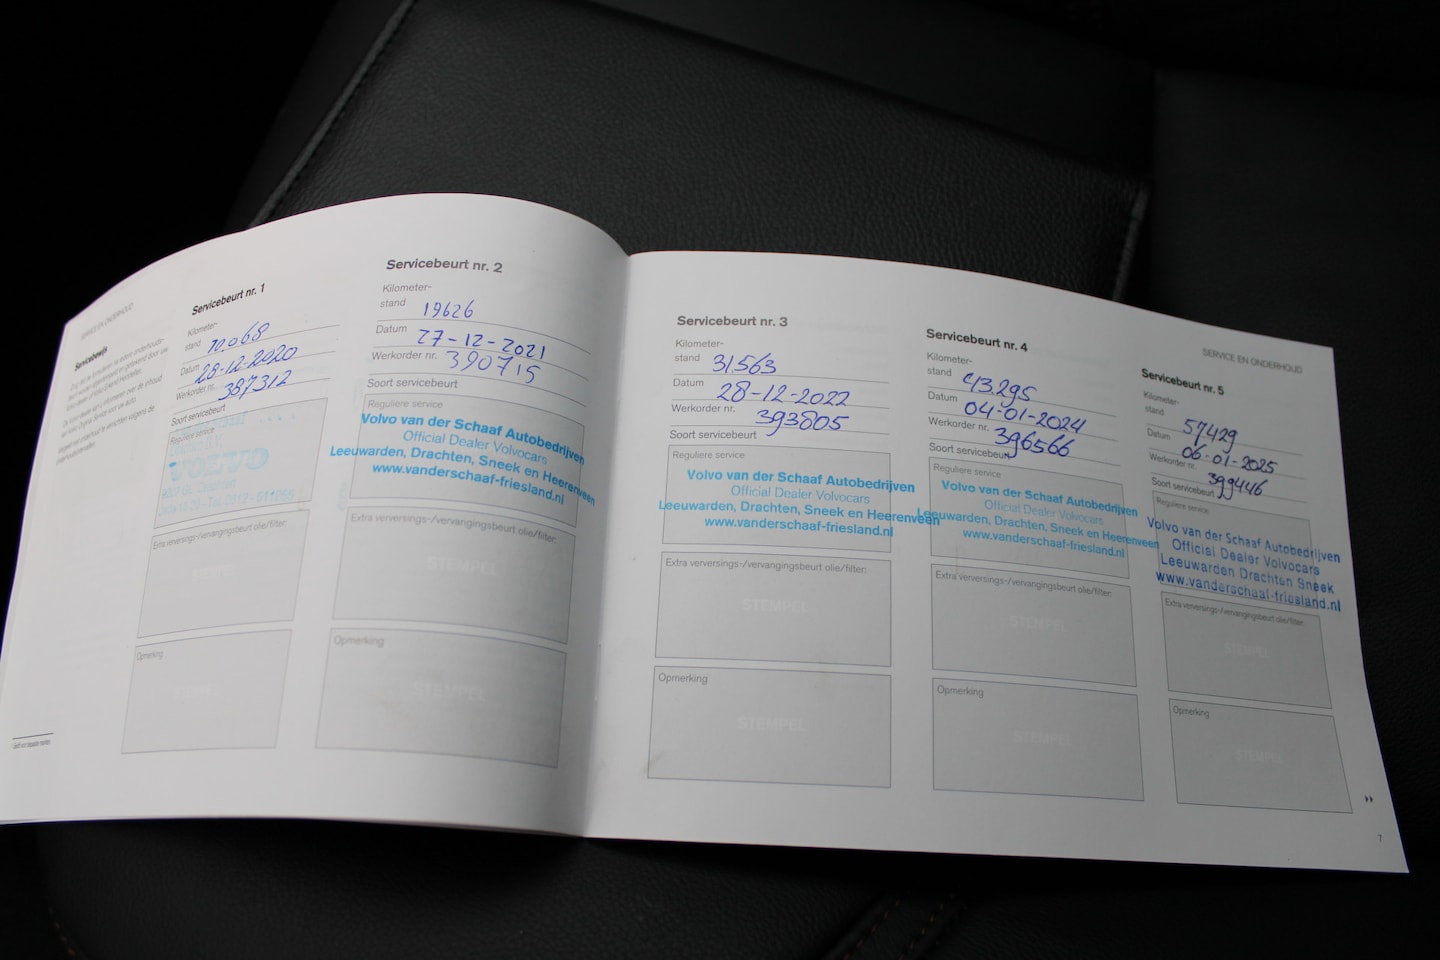 SERVICE EN ONDERHOUD
Servicebewijs
Servicebeurt nr. 1
Kilometer-
stand 10.068
Datum 28-12-2020
Werkorder nr. 387312
Soort servicebeurt
Reguliere service
VOLVO
Extra verversings-/vervangingsbeurt olie/filter:
STEMPEL
Opmerking
STEMPEL
Servicebeurt nr. 2
Kilometer-
stand 19626
Datum 27-12-2021
Werkorder nr. 390715
Soort servicebeurt
Reguliere service
Volvo van der Schaaf Autobedrijven
Official Dealer Volvocars
Leeuwarden, Drachten, Sneek en Heerenveen
www.vanderschaaf-friesland.nl
Extra verversings-/vervangingsbeurt olie/filter:
STEMPEL
Opmerking
STEMPEL
Servicebeurt nr. 3
Kilometer-
stand 31.563
Datum 28-12-2022
Werkorder nr. 393805
Soort servicebeurt
Reguliere service
Volvo van der Schaaf Autobedrijven
Official Dealer Volvocars
Leeuwarden, Drachten, Sneek en Heerenveen
www.vanderschaaf-friesland.nl
Extra verversings-/vervangingsbeurt olie/filter:
STEMPEL
Opmerking
STEMPEL
Servicebeurt nr. 4
Kilometer-
stand 43.295
Datum 04-01-2024
Werkorder nr. 396566
Soort servicebeurt
Reguliere service
Volvo van der Schaaf Autobedrijven
Official Dealer Volvocars
Leeuwarden, Drachten, Sneek en Heerenveen
www.vanderschaaf-friesland.nl
Extra verversings-/vervangingsbeurt olie/filter:
STEMPEL
Opmerking
STEMPEL
SERVICE EN ONDERHOUD
Servicebeurt nr. 5
Kilometer-
stand 57429
Datum 06-01-2025
Werkorder nr. 399446
Soort servicebeurt
Reguliere service
Volvo van der Schaaf Autobedrijven
Official Dealer Volvocars
Leeuwarden Drachten Sneek
www.vanderschaaf-friesland.nl
Extra verversings-/vervangingsbeurt olie/filter:
STEMPEL
Opmerking
STEMPEL
7